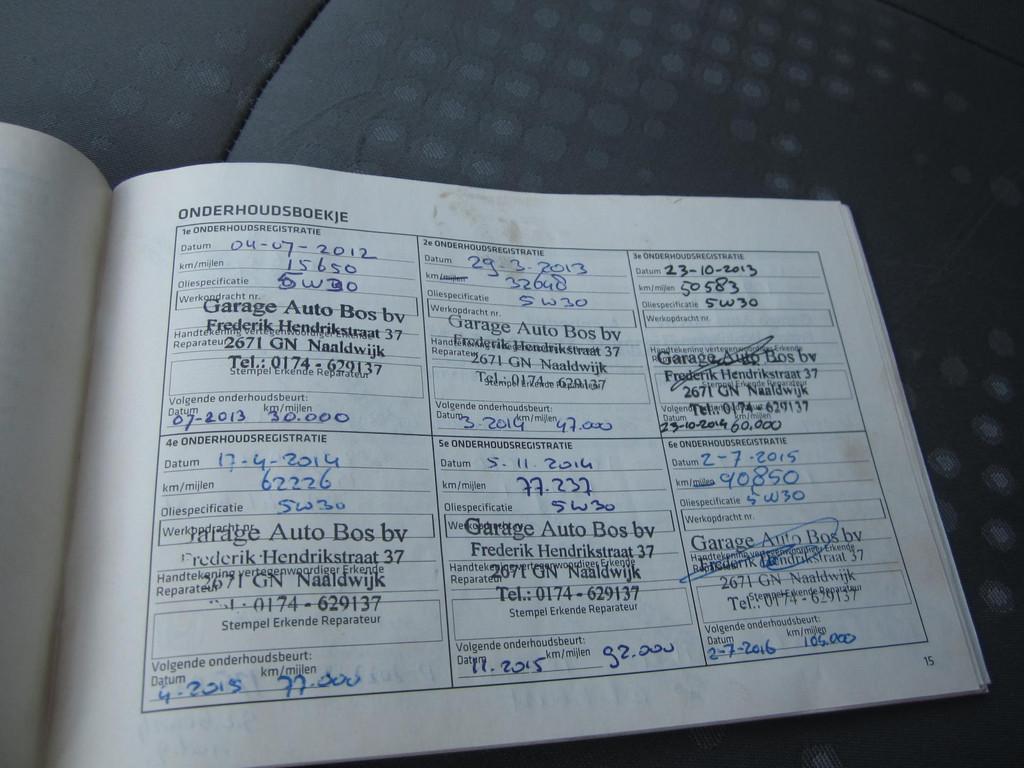 ONDERHOUDSBOEKJE
1e ONDERHOUDSREGISTRATIE
Datum 04-07-2012
km/mijlen 15650
Oliespecificatie 5W30
Werkopdracht nr.
Garage Auto Bos bv
Frederik Hendrikstraat 37
Handtekening vertegenwoordiger Erkende
Reparateur
2671 GN Naaldwijk
Tel.: 0174 - 629137
Stempel Erkende Reparateur
Volgende onderhoudsbeurt:
Datum km/mijlen
07-2013 30.000
2e ONDERHOUDSREGISTRATIE
Datum 29-3-2013
km/mijlen 32648
Oliespecificatie 5W30
Werkopdracht nr.
Garage Auto Bos bv
Frederik Hendrikstraat 37
Handtekening vertegenwoordiger Erkende
Reparateur
2671 GN Naaldwijk
Tel.: 0174 - 629137
Stempel Erkende Reparateur
Volgende onderhoudsbeurt:
Datum km/mijlen
3-2014 47.000
3e ONDERHOUDSREGISTRATIE
Datum 23-10-2013
km/mijlen 50583
Oliespecificatie 5W30
Werkopdracht nr.
Handtekening vertegenwoordiger Erkende
Garage Auto Bos bv
Frederik Hendrikstraat 37
Stempel Erkende Reparateur
2671 GN Naaldwijk
Tel.: 0174 - 629137
km/mijlen
23-10-2014 60.000
4e ONDERHOUDSREGISTRATIE
Datum 17-4-2014
km/mijlen 62226
Oliespecificatie 5W30
Werkopdracht nr.
Garage Auto Bos bv
Frederik Hendrikstraat 37
Handtekening vertegenwoordiger Erkende
Reparateur
2671 GN Naaldwijk
Tel.: 0174 - 629137
Stempel Erkende Reparateur
Volgende onderhoudsbeurt:
Datum km/mijlen
4-2015 77.000
5e ONDERHOUDSREGISTRATIE
Datum 5-11-2014
km/mijlen 77.237
Oliespecificatie 5W30
Werkopdracht nr.
Garage Auto Bos bv
Frederik Hendrikstraat 37
Handtekening vertegenwoordiger Erkende
Reparateur
2671 GN Naaldwijk
Tel.: 0174 - 629137
Stempel Erkende Reparateur
Volgende onderhoudsbeurt:
Datum km/mijlen
11.2015 92.000
6e ONDERHOUDSREGISTRATIE
Datum 2-7-2015
km/mijlen 90850
Oliespecificatie 5W30
Werkopdracht nr.
Garage Auto Bos bv
Handtekening vertegenwoordiger Erkende
Reparateur
Frederik Hendrikstraat 37
2671 GN Naaldwijk
Stempel Erkende Reparateur
Tel.: 0174 - 629137
Volgende onderhoudsbeurt:
Datum km/mijlen
2-7-2016 105.000
15